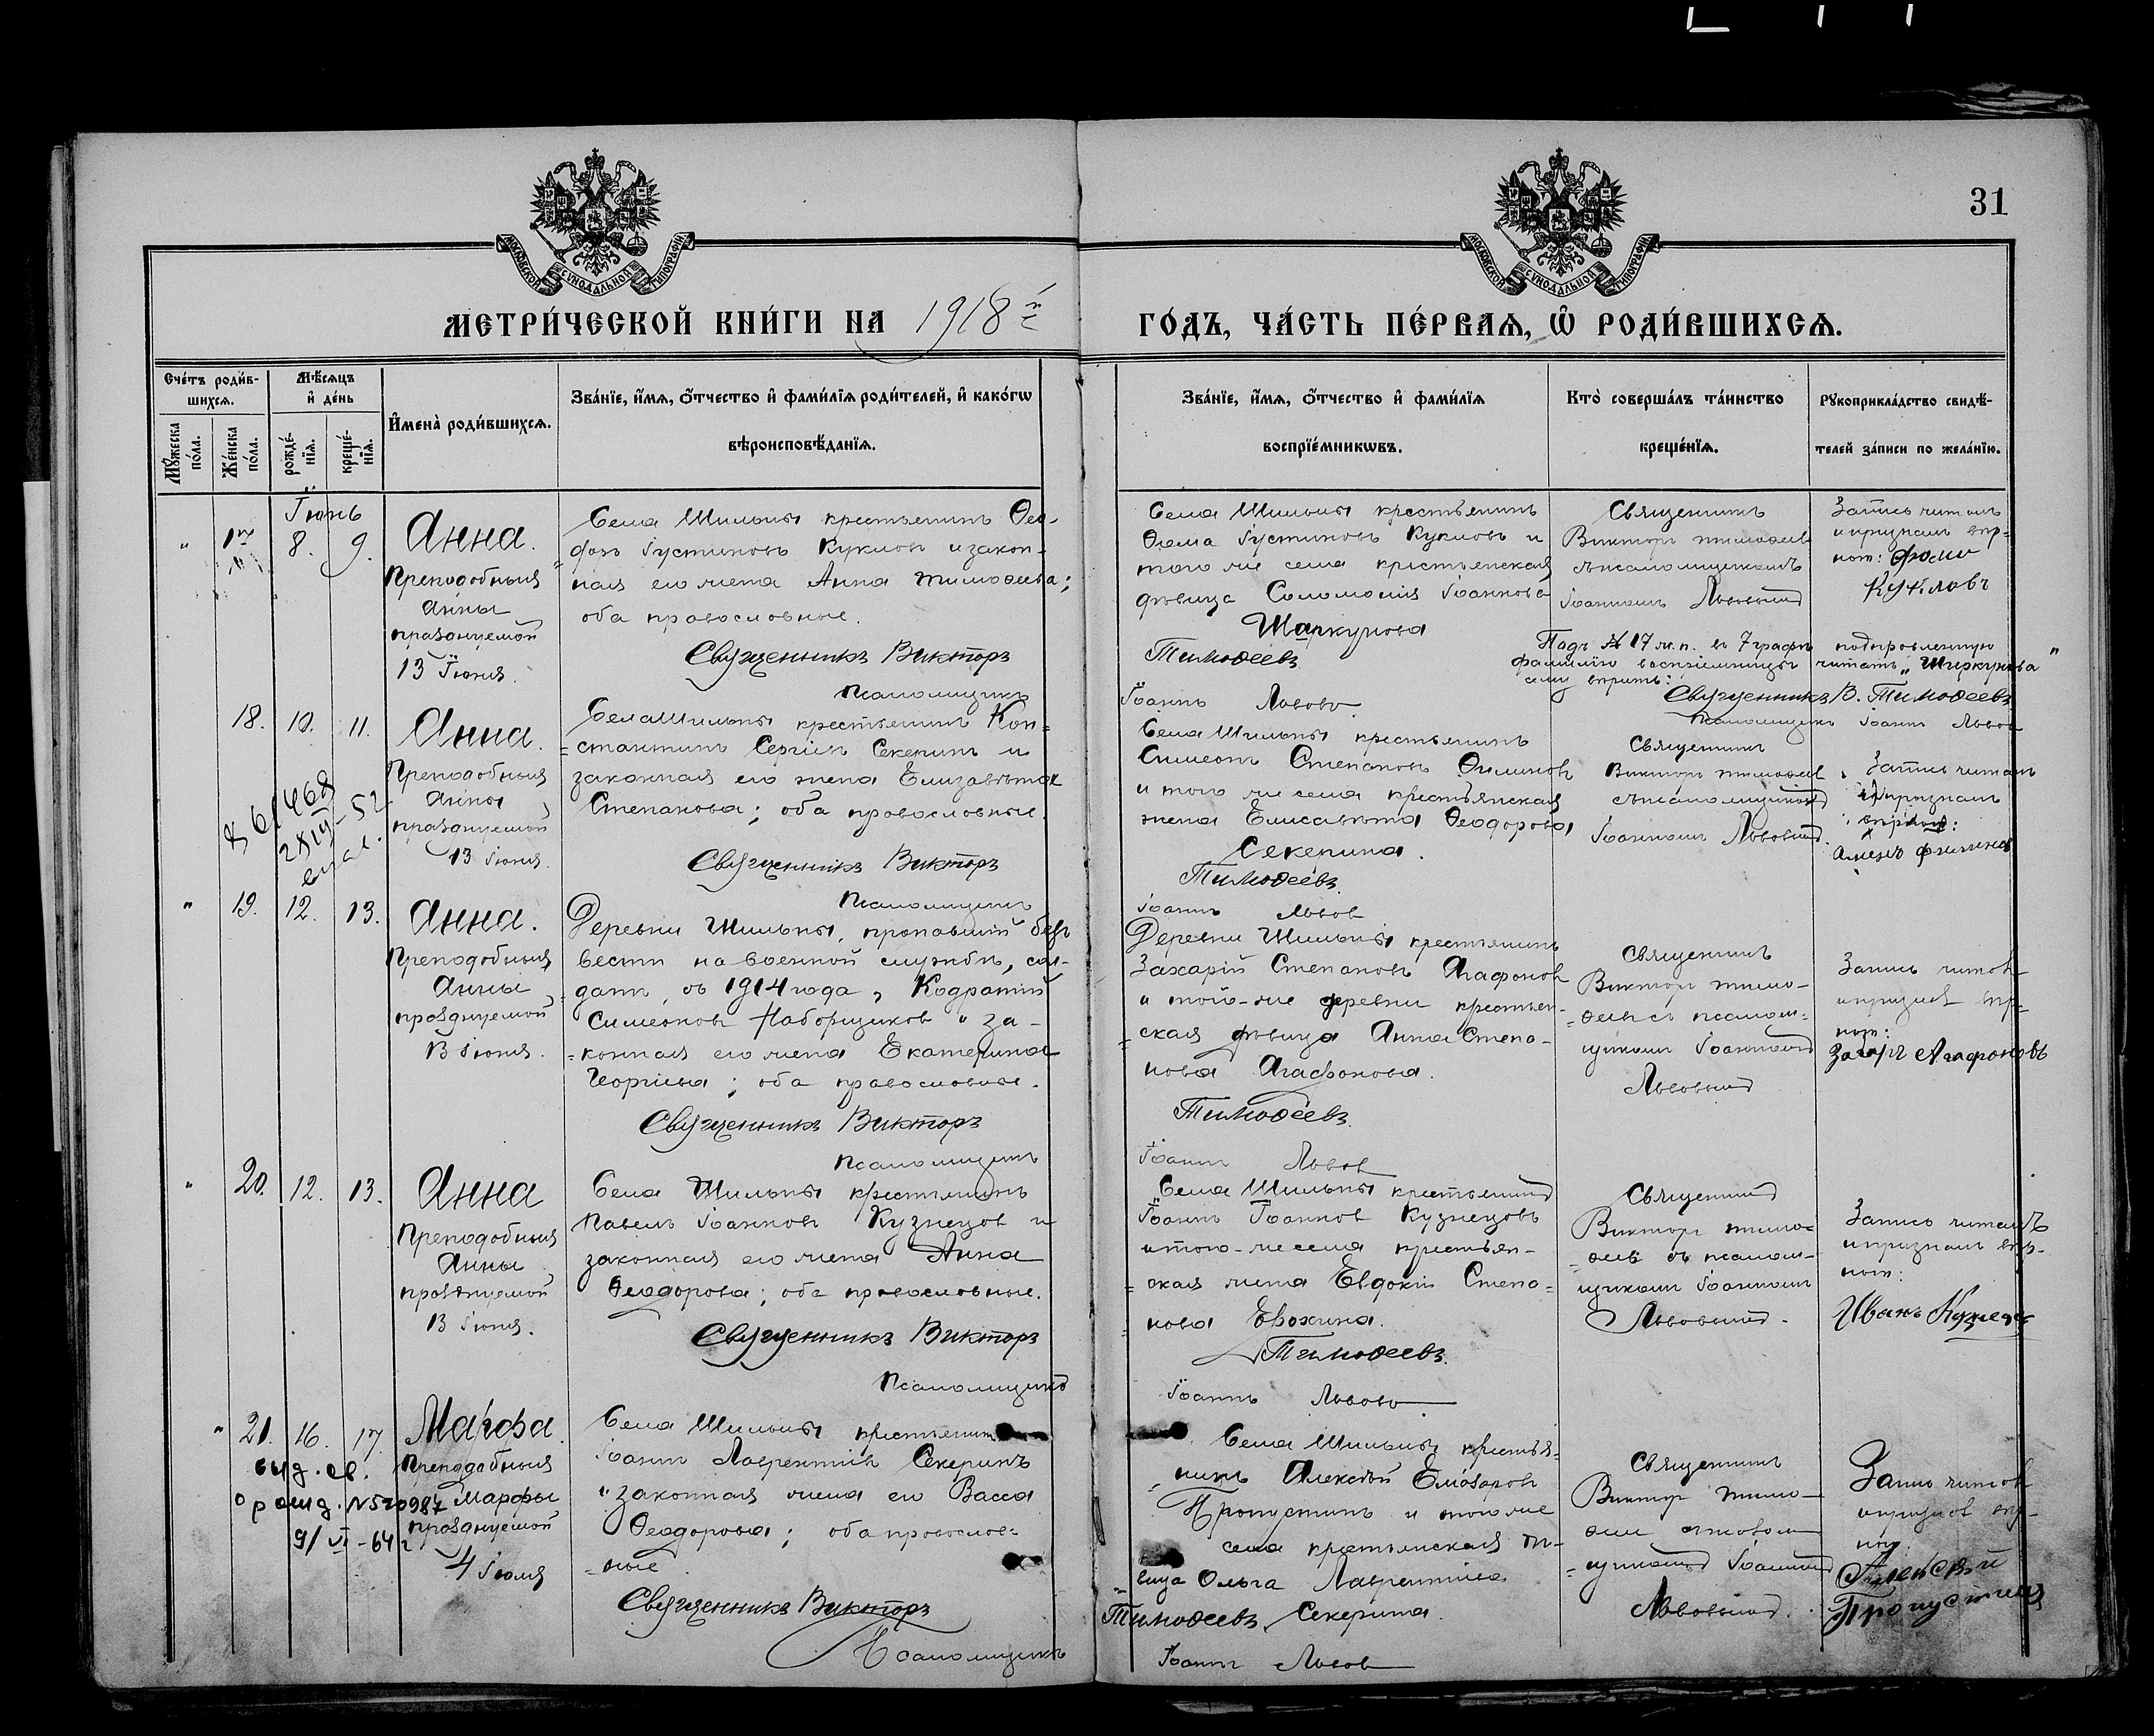 31
МОСКОВСКОЙ СУНОДАЛЬНОЙ ТИПОГРАФІИ
МОСКОВСКОЙ СУНОДАЛЬНОЙ ТИПОГРАФІИ
МЕТРИ́ЧЕСКОЙ КНИ́ГИ НА 1918 й
ГО́ДЪ, ЧА́СТЬ ПЕ́РВАѦ, Ѽ РОДИ́ВШИХСѦ.
Сче́тъ роди́в-
шихсѧ.
Му́жеска по́ла.
Же́нска по́ла.
Мѣ́сѧцъ и҆ де́нь
рожде́-нїѧ.
креще́-нїѧ.
И҆мена̀ роди́вшихсѧ.
Зва́нїе, и҆́мѧ, ѻ҆́тчество и҆ фами́лїѧ роди́телей, и҆ како́гѡ
вѣроисповѣ́данїѧ.
Зва́нїе, и҆́мѧ, ѻ҆́тчество и҆ фами́лїѧ
воспрїе́мникѡвъ.
Кто̀ соверша́лъ та́инство
креще́нїѧ.
Рꙋкоприкла́дство свидѣ́-
телей за́писи по жела́нїю.
Іюнь
" 17 8. 9.
Анна.
Преподобныя
Анны
празднуемой
13 Іюня.
Села Шильны крестьянинъ Ѳео-
фанъ Іустиновъ Куклов и закон-
ная его жена Анна Тимоѳеева;
оба православные.
Священникъ Викторъ
Псаломщикъ
Села Шильны крестьянинъ
Ѳома Іустиновъ Куклов и
того же села крестьянская
дѣвица Соломонія Іоаннова
Шаркунова
Тимоѳеевъ
Іоаннъ Львовъ
Священникъ
Викторъ Тимоѳеевъ
съ псаломщикомъ
Іоанномъ Львовымъ
Запись читалъ
и призналъ вѣр-
ной: Фома
Кукловъ
Подъ № 17 ж.п. въ 7 графѣ подправленную
фамилію воспріемницы читать „Шаркунова"
сему вѣрить:
Священникъ В. Тимоѳеевъ
Псаломщикъ Іоаннъ Львов
18. 10. 11.
Анна.
Преподобныя
Анны
празднуемой
13 Іюня.
Села Шильны крестьянинъ Кон-
стантинъ Сергіевъ Секеринъ и
законная его жена Елизавета
Степанова; оба православные.
Священникъ Викторъ
Псаломщикъ
Села Шильны крестьянинъ
Симеонъ Степановъ Филиновъ
и того же села крестьянская
жена Елисавета Ѳеодорова
Секерина.
Тимоѳеевъ.
Іоаннъ Львов
Священникъ
Викторъ Тимоѳеевъ
съ псаломщикомъ
Іоанномъ Львовымъ.
Запись читалъ
и призналъ
вѣрной:
" 19. 12. 13.
Анна.
Преподобныя
Анны
празднуемой
13 Іюня.
Деревни Шильны, пропавшій безъ
вести на военной службѣ, сол-
датъ, съ 1914 года, Кодратій
Симеонов Наборщиков и за-
конная его жена Екатерина
Георгіева; оба православные.
Священникъ Викторъ
Псаломщикъ
Деревни Шильны крестьянинъ
Захарій Степановъ Агафонов
и той-же деревни крестьян-
ская дѣвица Анна Степа-
нова Агафонова.
Тимоѳеевъ.
Іоаннъ Львов
Священникъ
Викторъ Тимо-
ѳеевъ съ псалом-
щикомъ Іоанномъ
Львовымъ
Запись читов
и признов вѣр-
ной:
Захаръ Агафоновъ
" 20. 12. 13.
Анна
Преподобныя
Анны
празднуемой
13 Іюня.
Села Шильны крестьянинъ
Павелъ Іоаннов Кузнецов и
законная его жена Анна
Ѳеодорова; оба православные.
Священникъ Викторъ
Псаломщикъ
Села Шильны крестьянинъ
Іоаннъ Іоаннов Кузнецовъ
и того-же села крестьян-
ская жена Евдокія Степа-
нова Ерохина.
Тимоѳеевъ.
Іоаннъ Львовъ
Священникъ
Викторъ Тимо-
ѳеевъ съ псалом-
щикомъ Іоанномъ
Львовымъ.
Запись читалъ
и призналъ вѣр-
ной:
Иванъ Кузнецовъ
" 21. 16. 17.
выд. св.
о рожд. №520987
9/VI-64 г
Марфа.
Преподобныя
Марфы
празднуемой
4 Іюля
Села Шильны крестьянинъ
Іоаннъ Лаврентіев Секеринъ
и законная жена его Васса
Ѳеодорова; оба православ-
ные.
Священникъ Викторъ
Псаломщикъ
Села Шильны крестья-
нинъ Алексѣй Елеазаров
Пропустинъ и того же
села крестьянская дѣ-
вица Ольга Лаврентіева
Тимоѳеевъ, Секерина.
Іоаннъ Львов
Священникъ
Викторъ Тимо-
ѳеев с псалом-
щикомъ Іоанномъ
Львовымъ.
Запись читов
и признов вѣр-
ной:
Алексѣй
Пропустинъ